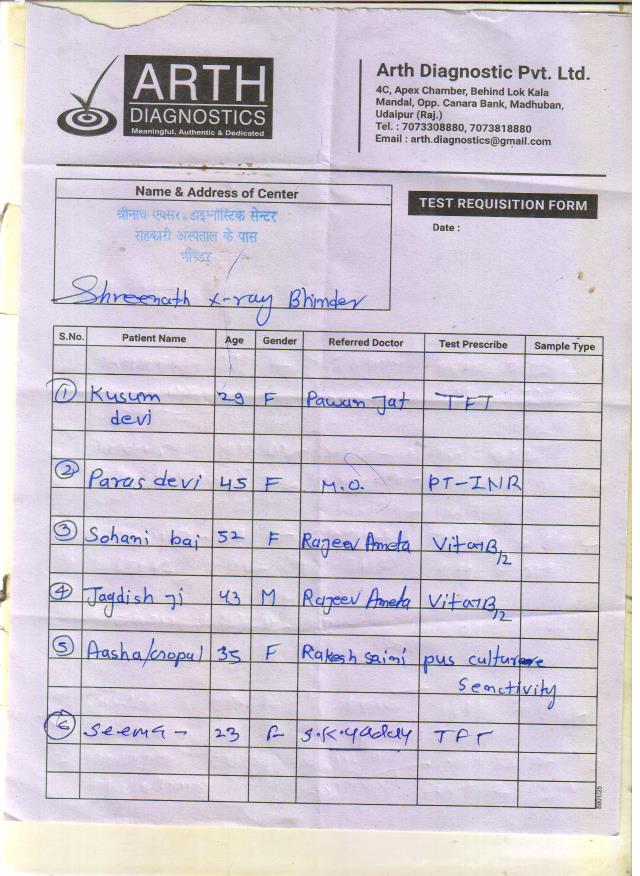 ARTH
DIAGNOSTICS
Meaningful, Authentic & Dedicated
Arth Diagnostic Pvt. Ltd.
4C, Apex Chamber, Behind Lok Kala
Mandal, Opp. Canara Bank, Madhuban,
Udaipur (Raj.)
Tel. : 7073308880, 7073818880
Email : arth.diagnostics@gmail.com
Name & Address of Center
श्रीनाथ एक्सरे डाइग्नोस्टिक सेन्टर
सहकारी अस्पताल के पास
भीण्डर
Shreenath X-ray Bhinder
TEST REQUISITION FORM
Date :
S.No. Patient Name Age Gender Referred Doctor Test Prescribe Sample Type
1 Kusum 29 F Pawan Jat TFT
devi
2 Paras devi 45 F M.O. PT-INR
3 Sohani bai 52 F Rajeev Ameta Vita-B12
4 Jagdish Ji 43 M Rajeev Ameta Vita-B12
5 Aasha/Gopal 35 F Rakesh saini pus culture
Senctivity
6 Seema - 23 F S.K. Yadav TFT